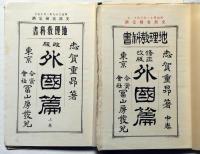 地理教科書
志賀重昂著
中卷
修正
改版
外國篇
東京
合資
會社
冨山房發兌
地理教科書
志賀重昂著
外國篇
上卷
東京
合資
會社
冨山房發兌